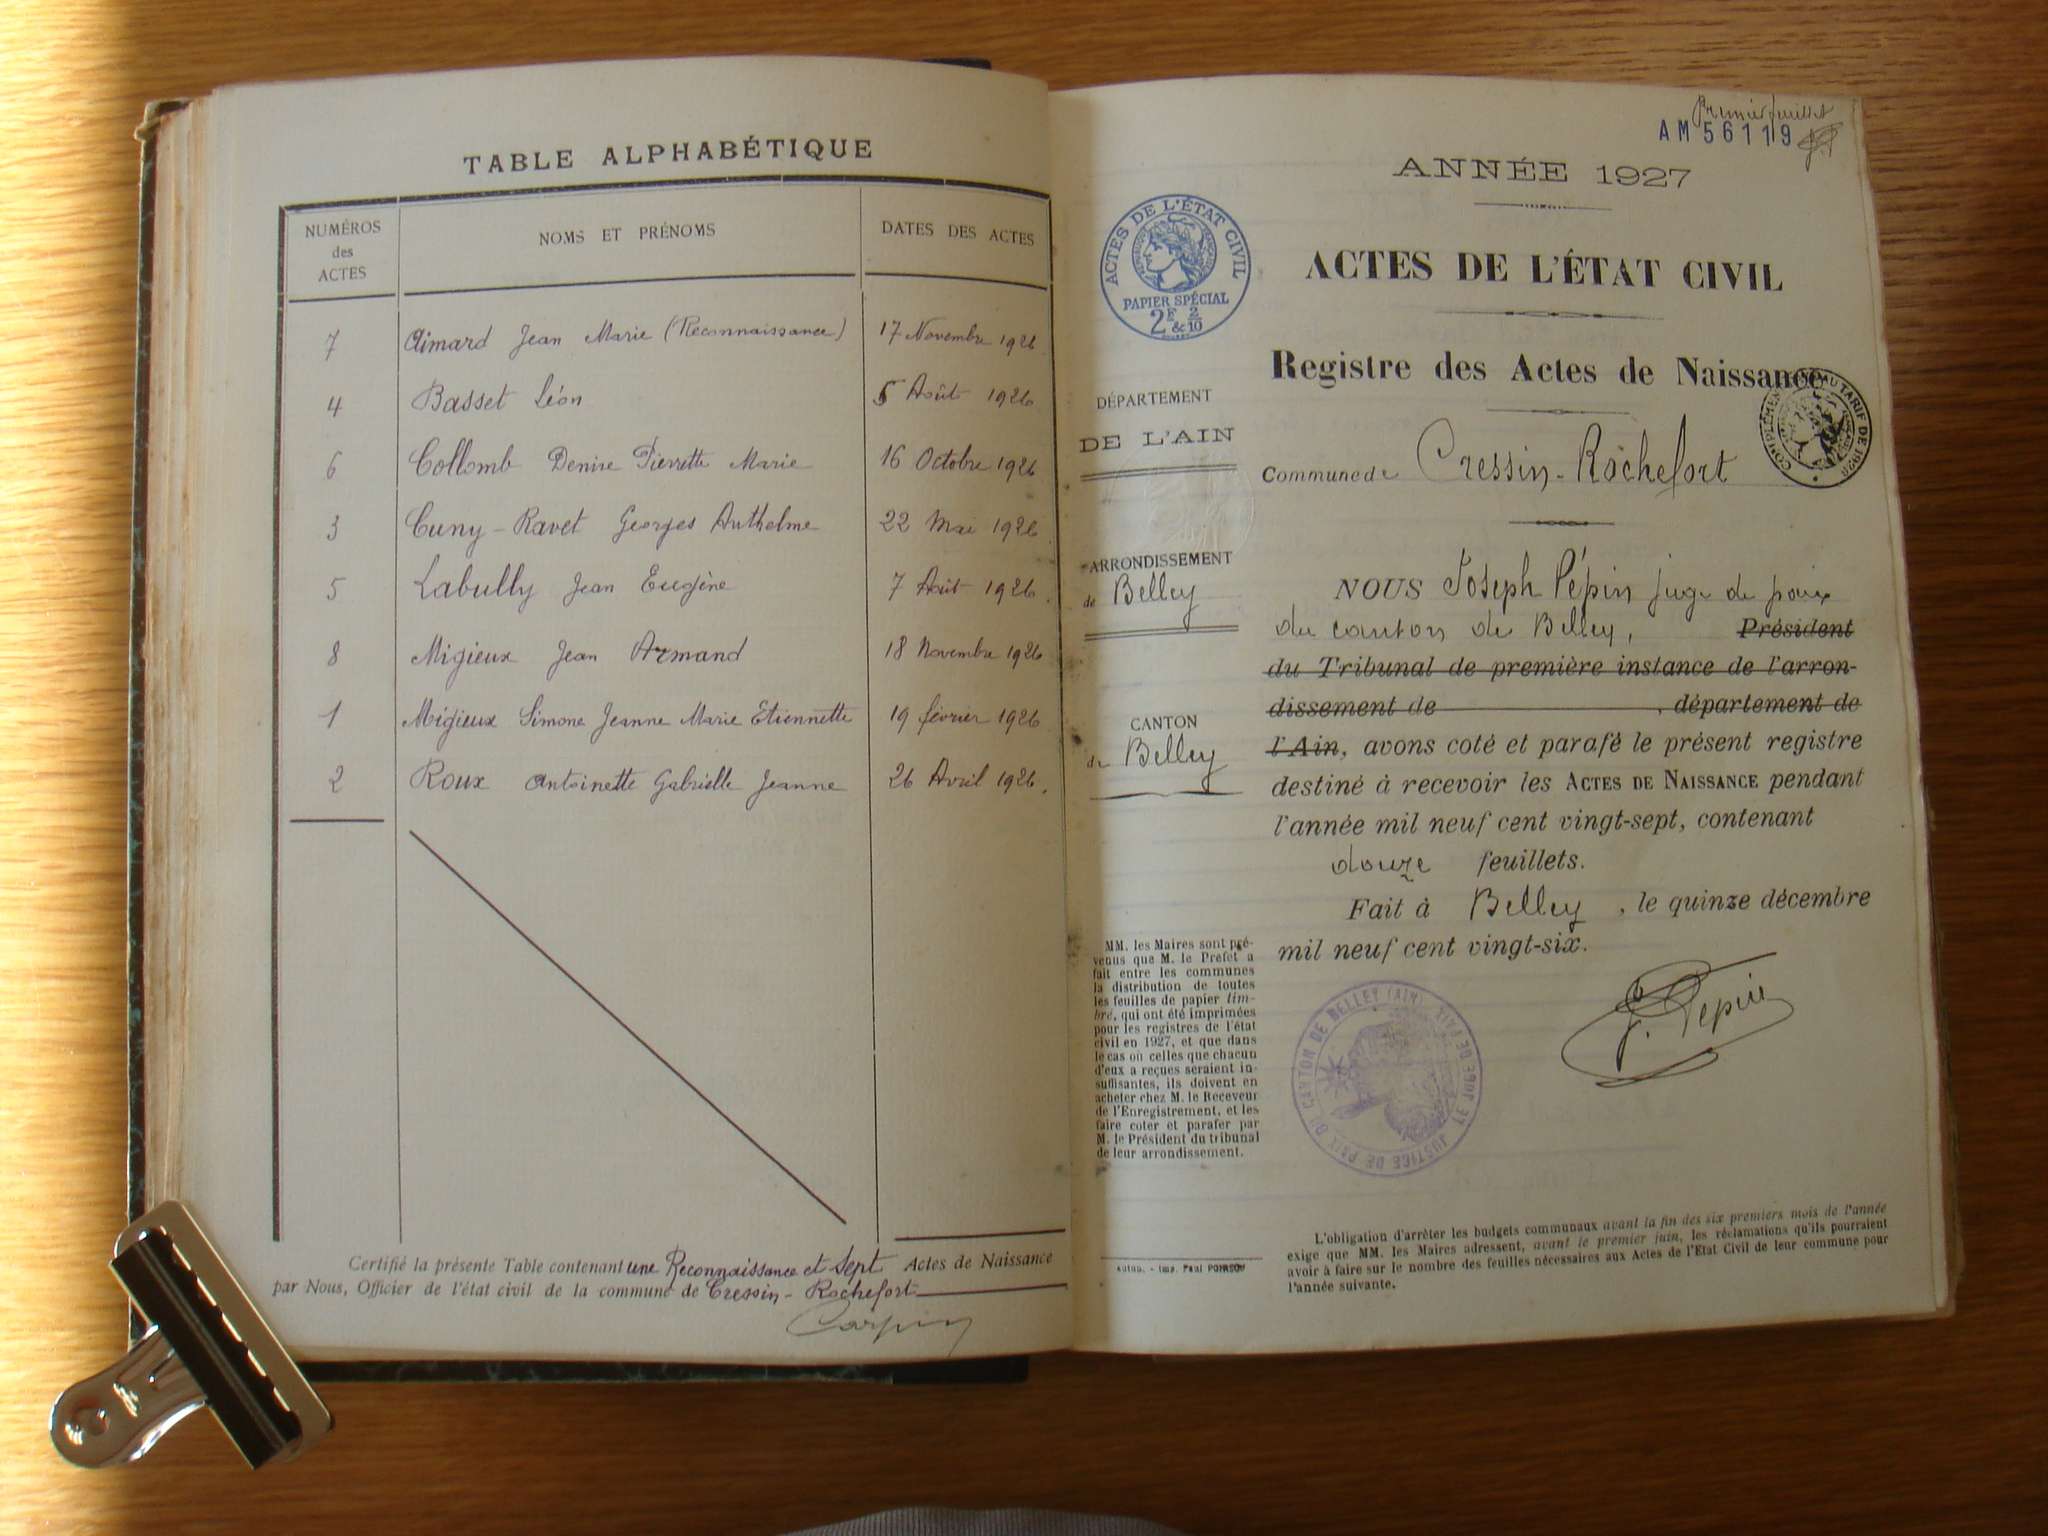 TABLE ALPHABÉTIQUE
NUMÉROS des ACTES NOMS ET PRÉNOMS DATES DES ACTES
7 Aimard Jean Marie (Reconnaissance) 17 Novembre 1926
4 Basset Léon 5 Août 1926
6 Collomb Denise Pierrette Marie 16 Octobre 1926
3 Cuny-Ravet Georges Anthelme 22 Mai 1926
5 Labully Jean Eugène 7 Août 1926.
8 Migieux Jean Armand 18 Novembre 1926
1 Migieux Simone Jeanne Marie Etiennette 19 février 1926
2 Roux Antoinette Gabrielle Jeanne 26 Avril 1926.
Certifié la présente Table contenant une Reconnaissance et Sept Actes de Naissance
par Nous, Officier de l'état civil de la commune de Cressin-Rochefort
Premier feuillet
AM 56119
ANNÉE 1927
ACTES DE L'ÉTAT CIVIL
PAPIER SPÉCIAL
2F & 2/10
ACTES DE L'ÉTAT CIVIL
Registre des Actes de Naissance
TARIF DE 1926
DÉPARTEMENT
DE L'AIN
Commune de Cressin-Rochefort
ARRONDISSEMENT
de Belley
CANTON
de Belley
NOUS Joseph Pépin juge de paix
du canton de Belley, Président
du Tribunal de première instance de l'arron-
dissement de , département de
l'Ain, avons coté et parafé le présent registre
destiné à recevoir les ACTES DE NAISSANCE pendant
l'année mil neuf cent vingt-sept, contenant
douze feuillets.
Fait à Belley, le quinze décembre
mil neuf cent vingt-six.
J. Pépin
JUSTICE DE PAIX DU CANTON DE BELLEY (AIN)
MM. les Maires sont pré-
venus que M. le Préfet a
fait entre les communes
la distribution de toutes
les feuilles de papier tim-
bré, qui ont été imprimées
pour les registres de l'état
civil en 1927, et que dans
le cas où celles que chacun
d'eux a reçues seraient in-
suffisantes, ils doivent en
acheter chez M. le Receveur
de l'Enregistrement, et les
faire coter et parafer par
M. le Président du tribunal
de leur arrondissement.
Autun. - Imp. Paul
L'obligation d'arrêter les budgets communaux avant la fin des six premiers mois de l'année
exige que MM. les Maires adressent, avant le premier juin, les réclamations qu'ils pourraient
avoir à faire sur le nombre des feuilles nécessaires aux Actes de l'Etat Civil de leur commune pour
l'année suivante.